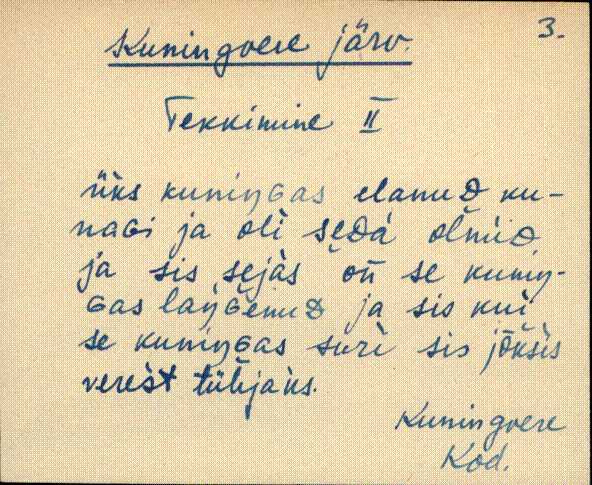 3.
Kuningvere järv.
Tekkimine II
üks kuniŋGas elanuD ku-
naGi ja oli seDa olnuD
ja sis sejas on se kuniŋ-
Gas laŋGenuD ja sis kui
se kuniŋGas suri sis jõksis
verest tühjaks.
Kuningvere
Kod.